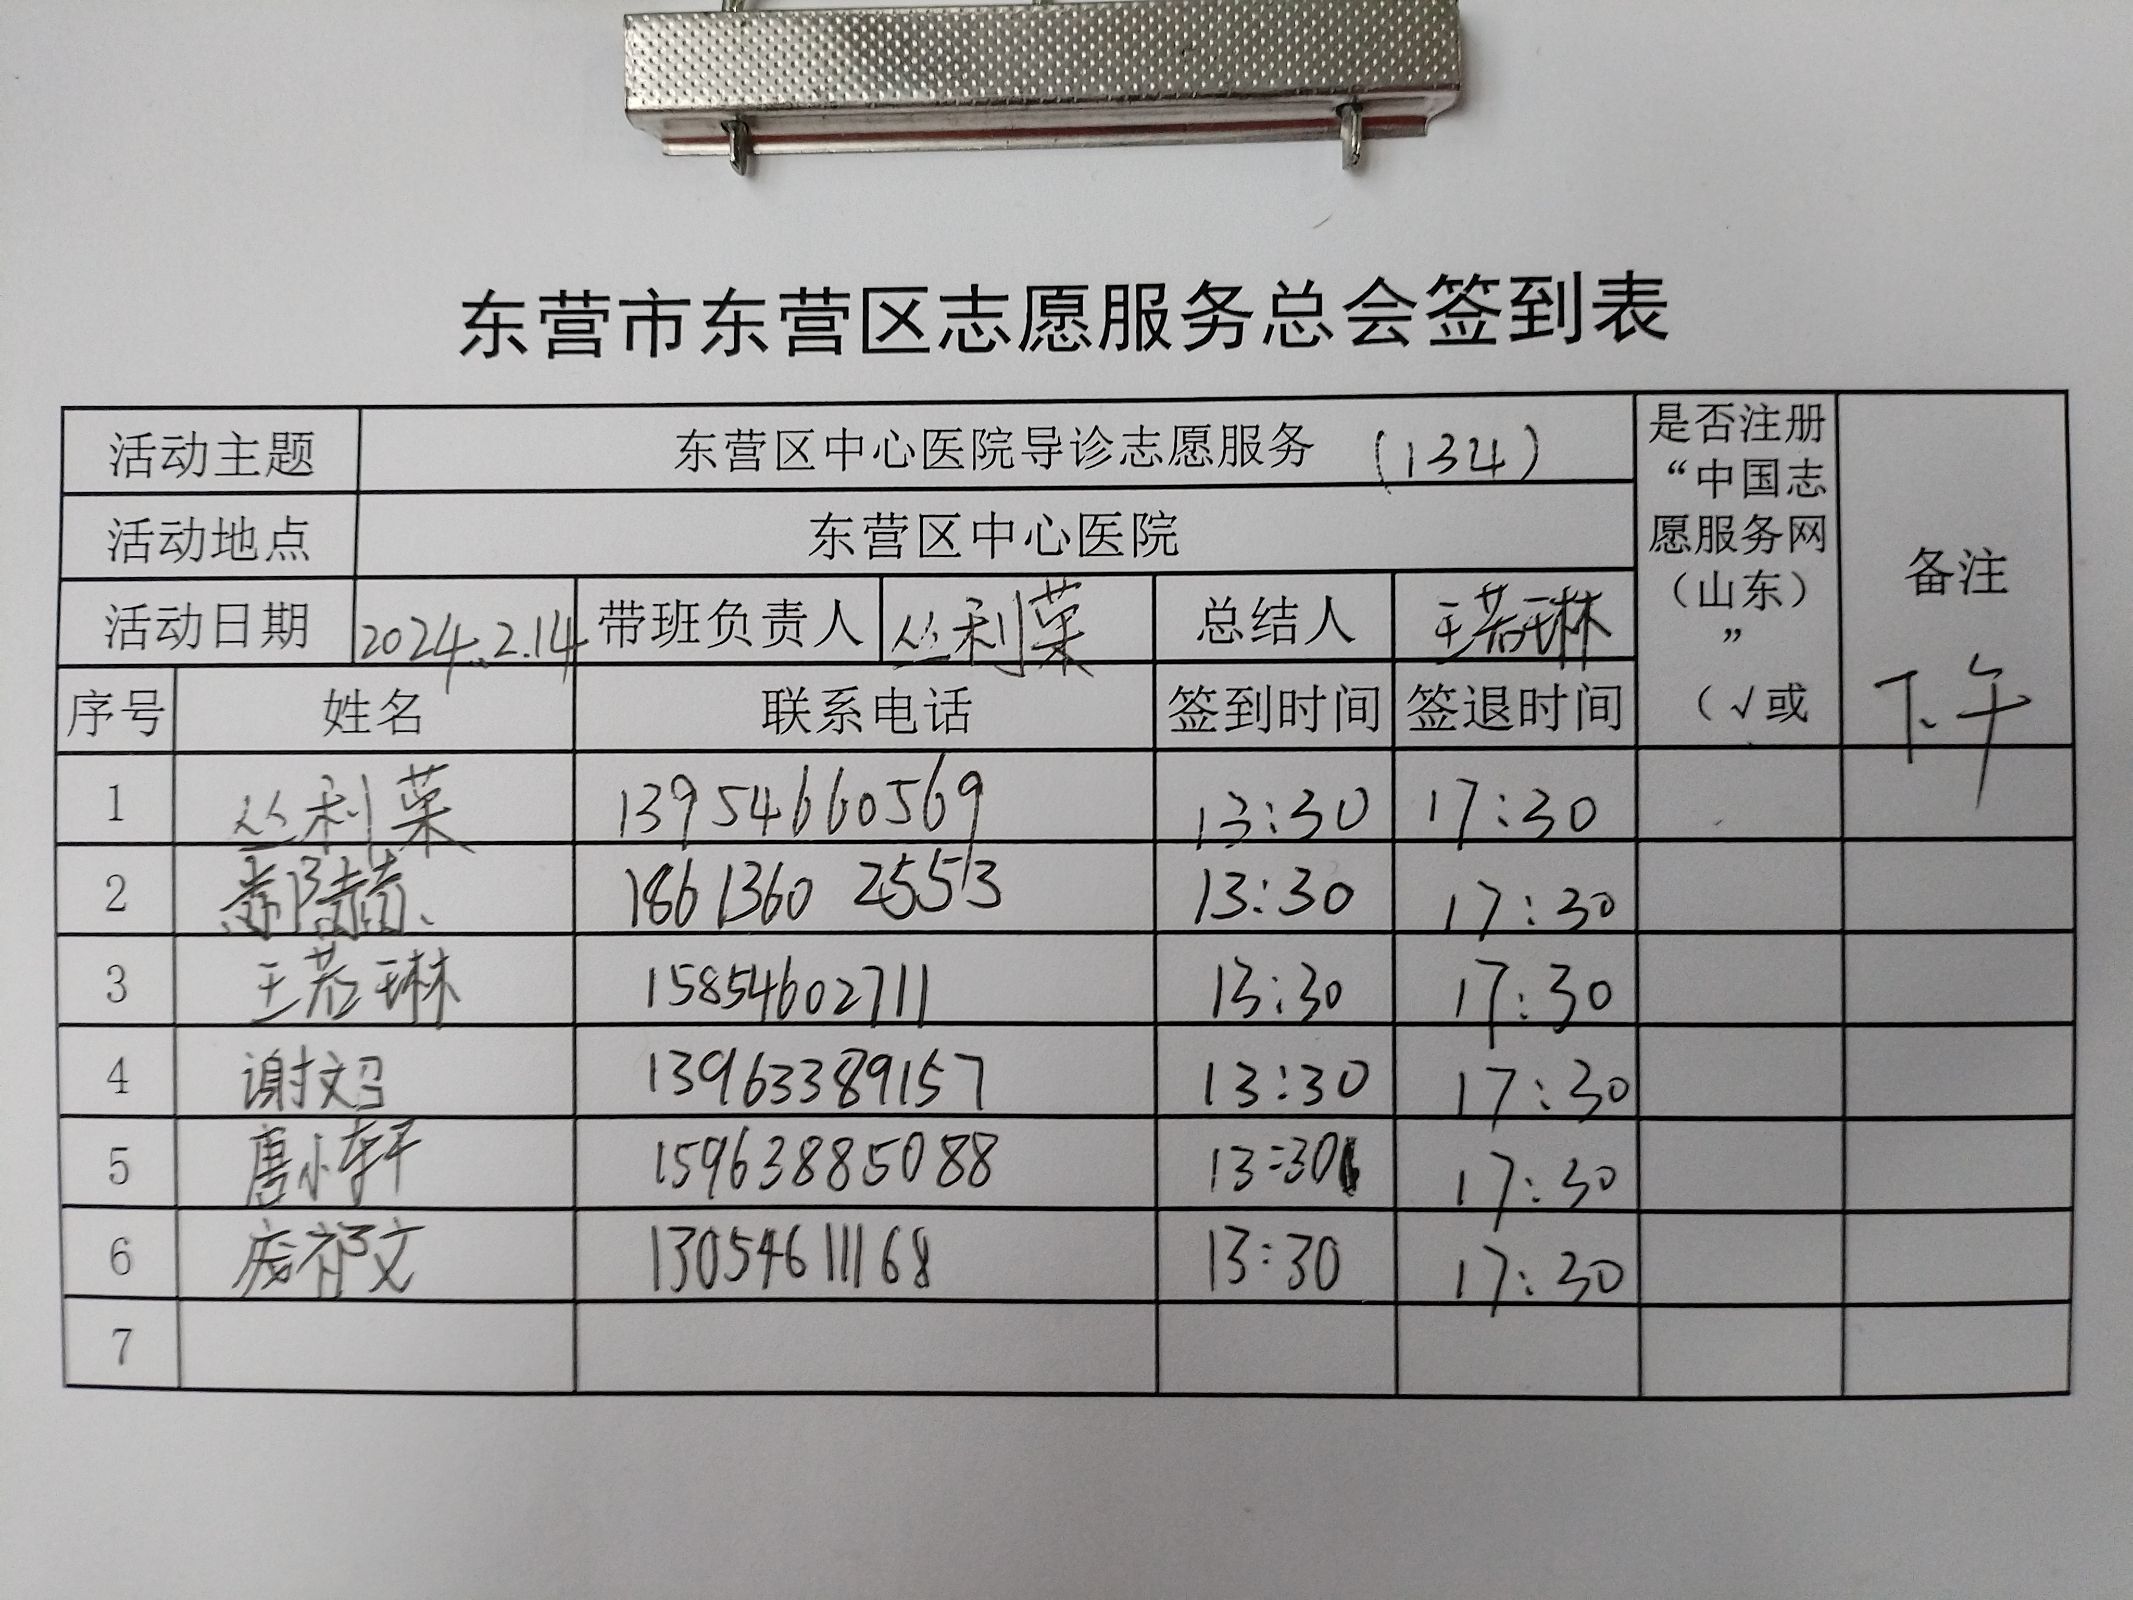 东营市东营区志愿服务总会签到表
活动主题 东营区中心医院导诊志愿服务 (134) 是否注册“中国志愿服务网（山东）”（√或 备注 下午
活动地点 东营区中心医院
活动日期 2024.2.14 带班负责人 丛利荣 总结人 王若琳
序号 姓名 联系电话 签到时间 签退时间
1 丛利荣 13954660569 13:30 17:30
2 18613602553 13:30 17:30
3 王若琳 15854602711 13:30 17:30
4 谢文 13963389157 13:30 17:30
5 唐小轩 15963885088 13:30 17:30
6 文 13054611168 13:30 17:30
7